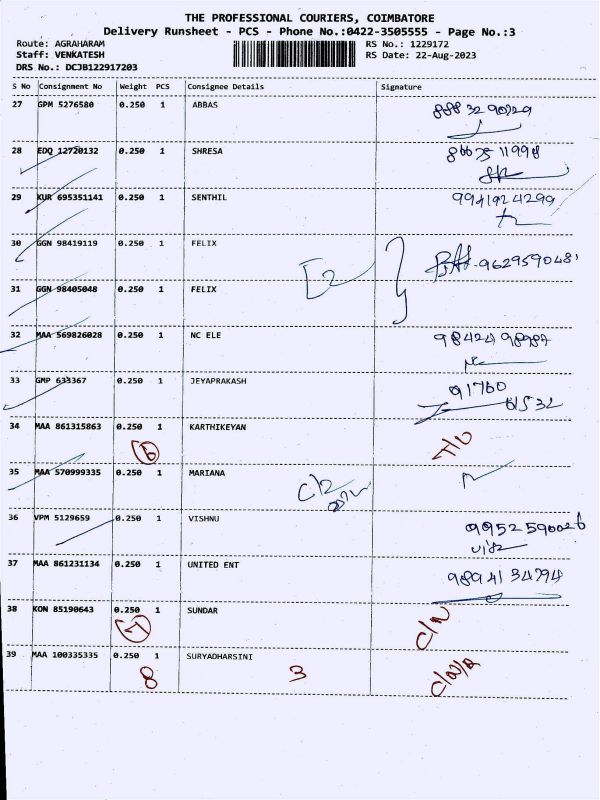 THE PROFESSIONAL COURIERS, COIMBATORE
Delivery Runsheet - PCS - Phone No.:0422-3505555 - Page No.:3
Route: AGRAHARAM RS No.: 1229172
Staff: VENKATESH RS Date: 22-Aug-2023
DRS No.: DCJB122917203
S No Consignment No Weight PCS Consignee Details Signature
27 GPM 5276580 0.250 1 ABBAS
28 EDQ 12720132 0.250 1 SHRESA 86675 11998
29 KUR 695351141 0.250 1 SENTHIL 9941924299
30 GGN 98419119 0.250 1 FELIX
9629590481
31 GGN 98405048 0.250 1 FELIX
32 MAA 569826028 0.250 1 NC ELE 98424 98987
33 GMP 633367 0.250 1 JEYAPRAKASH 91760
61532
34 MAA 861315863 0.250 1 KARTHIKEYAN
6
35 MAA 570999335 0.250 1 MARIANA
36 VPM 5129659 0.250 1 VISHNU 9952590026
37 MAA 861231134 0.250 1 UNITED ENT 9894134794
38 KON 85190643 0.250 1 SUNDAR
7 C/N
39 MAA 100335335 0.250 1 SURYADHARSINI
8 3